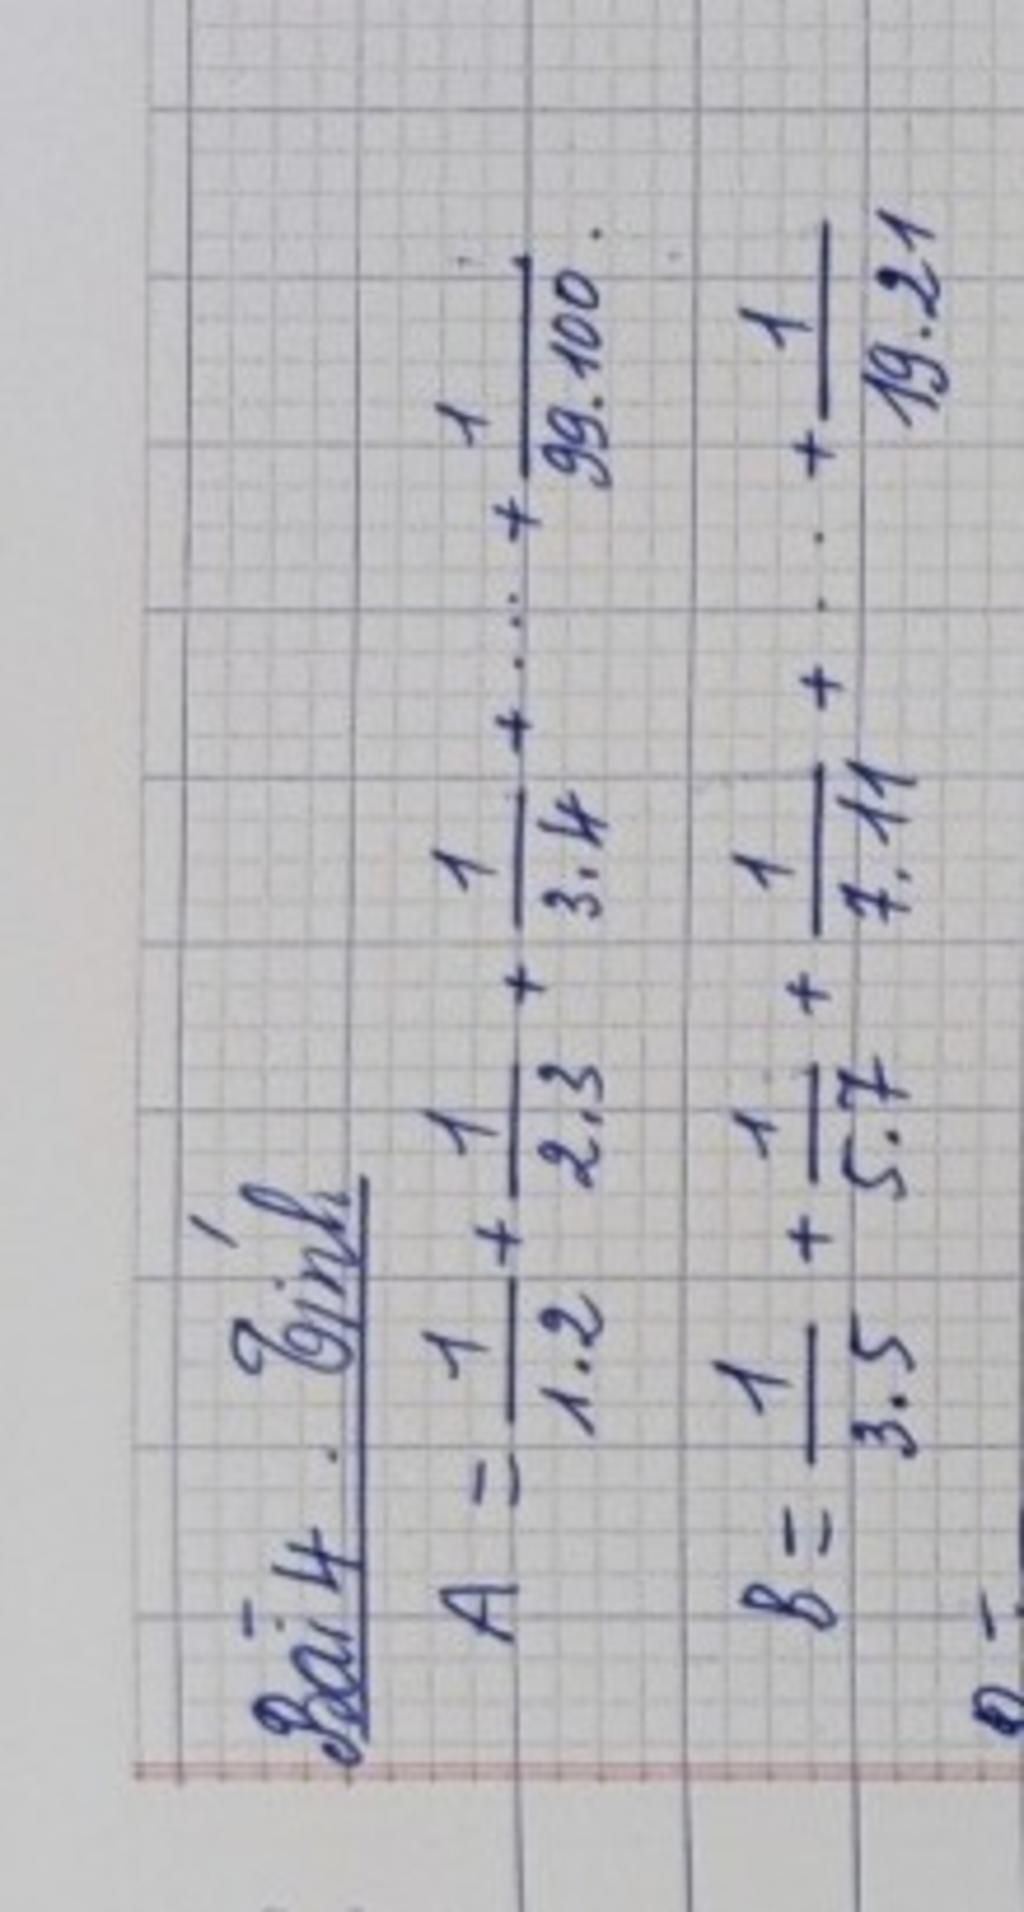 Bài 4. Tính
A = 1/1.2 + 1/2.3 + 1/3.4 + ... + 1/99.100.
B = 1/3.5 + 1/5.7 + 1/7.11 + .. + 1/19.21